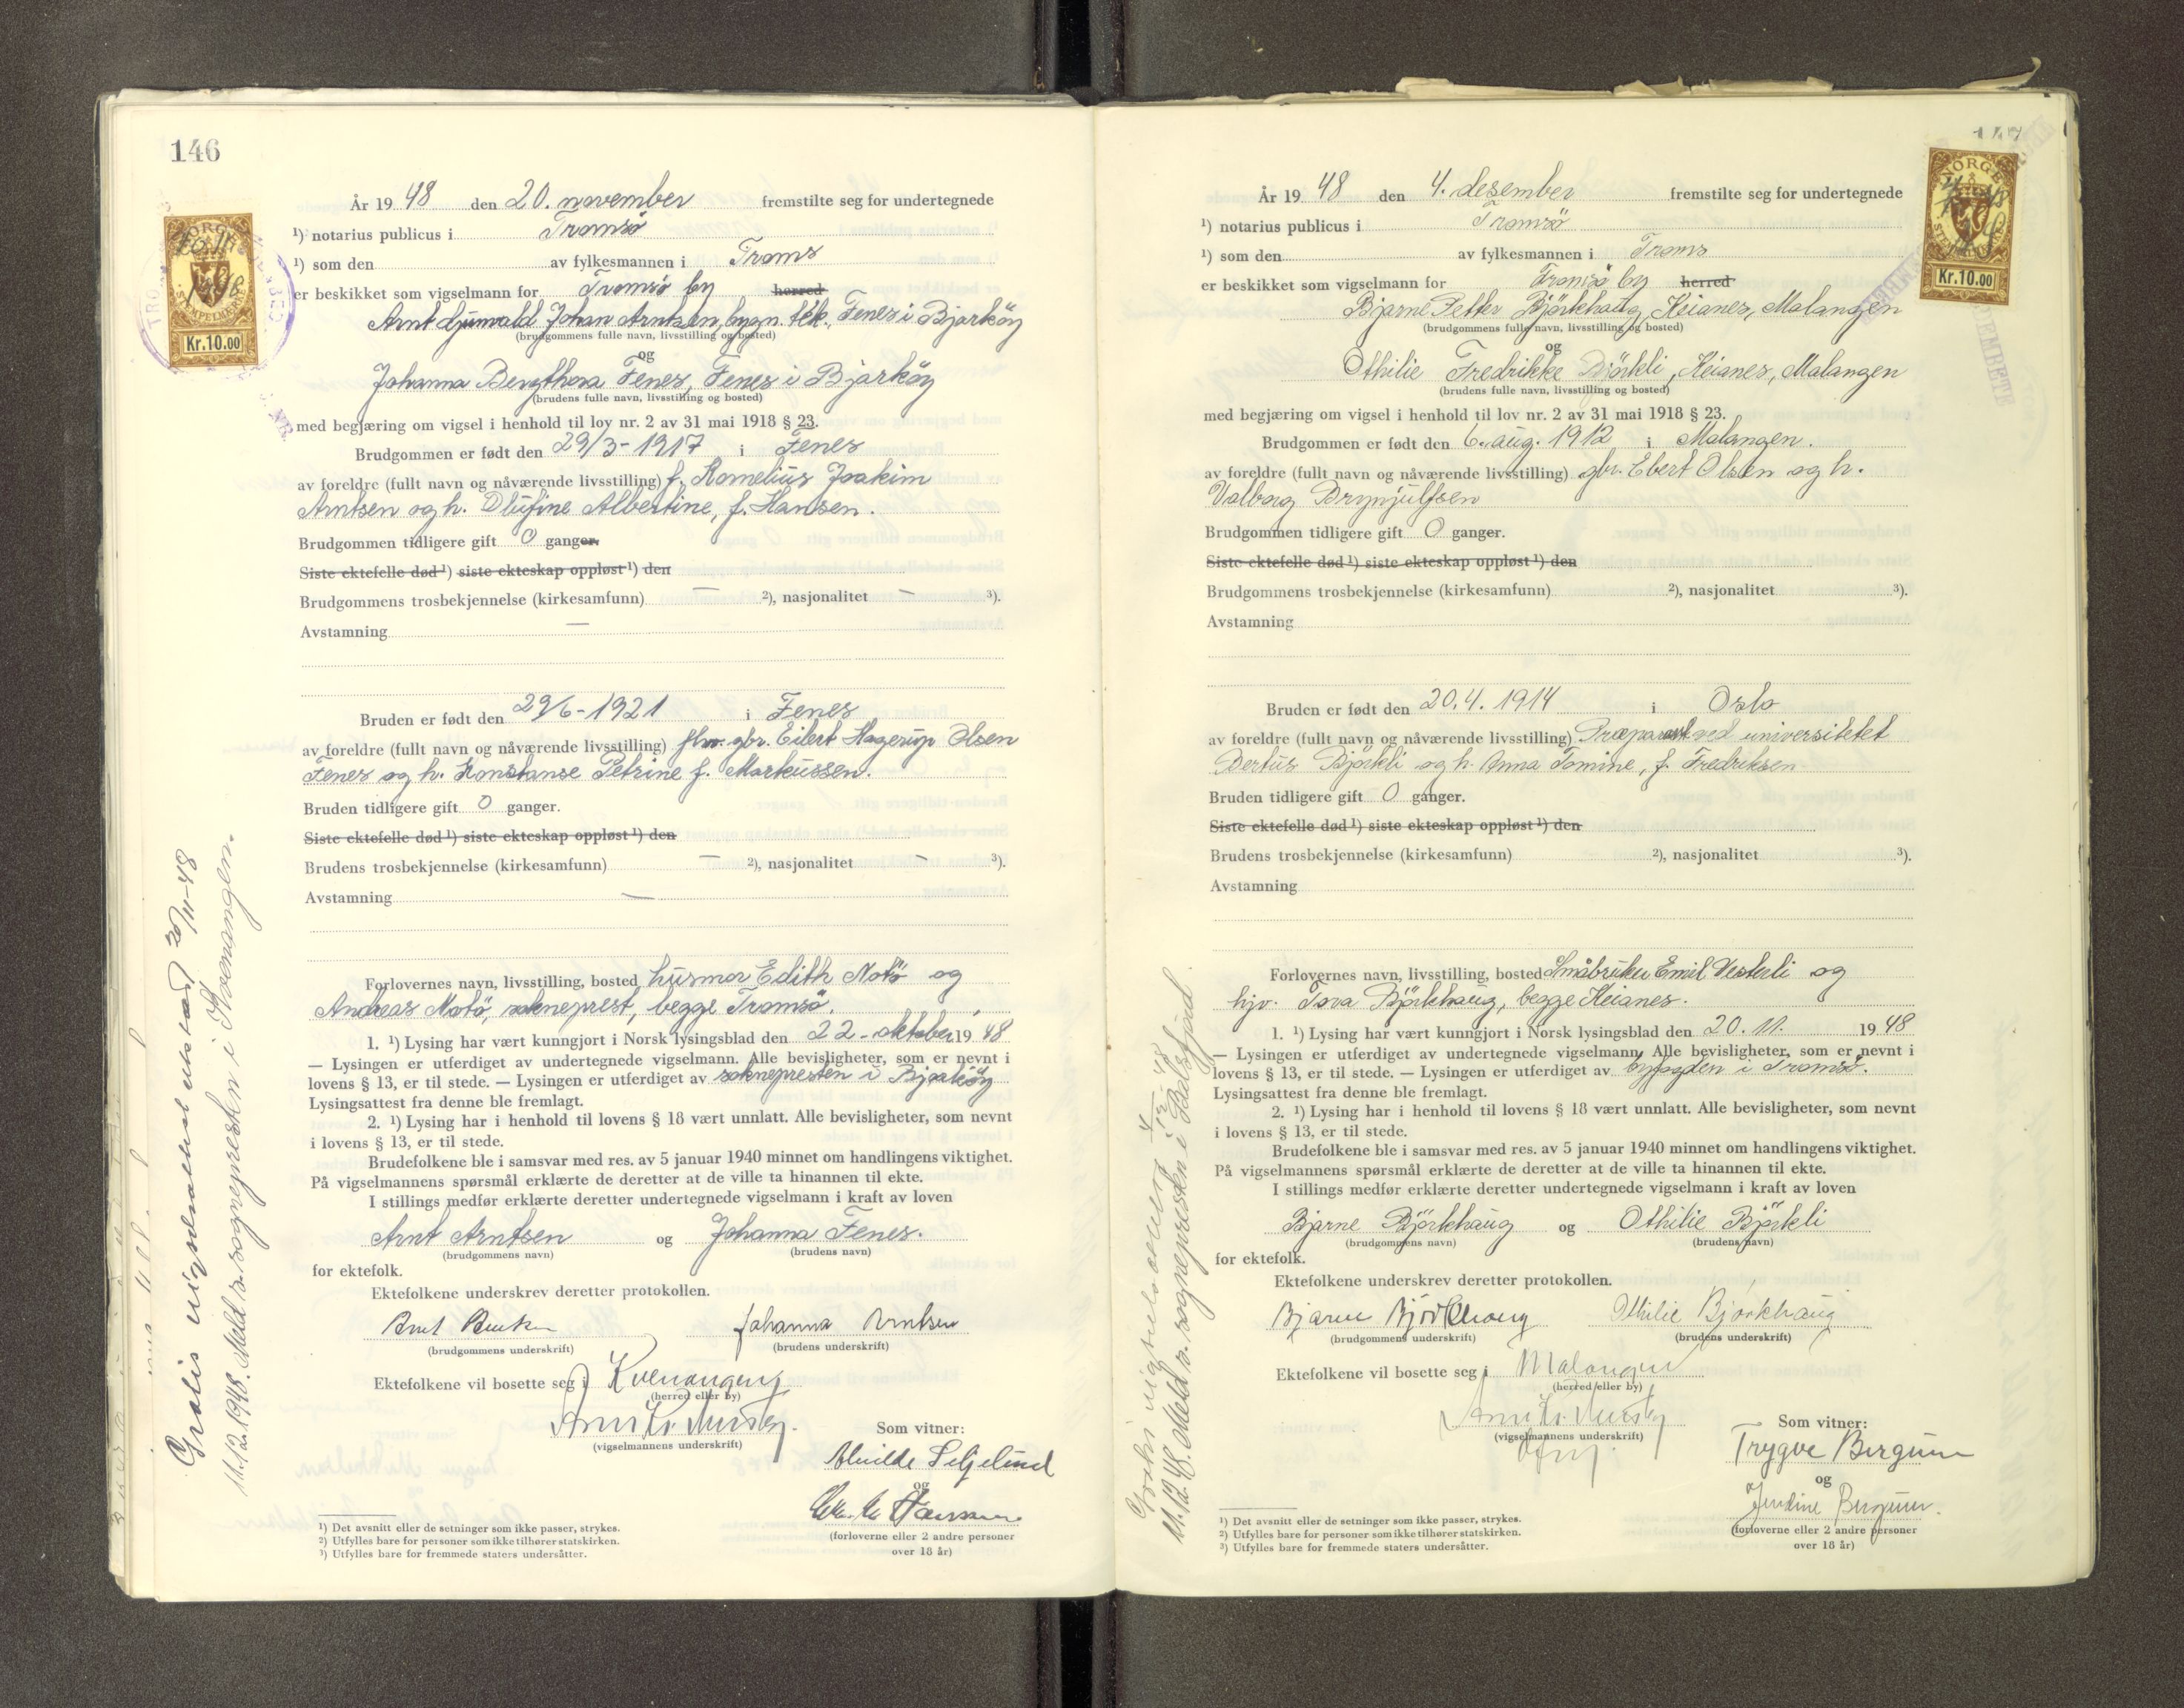 146
År 19 48 den 20. november fremstilte seg for undertegnede
¹) notarius publicus i Tromsö
¹) som den av fylkesmannen i Troms
er beskikket som vigselmann for Tromsö by herred
Arnt Johan Arntsen, bygn. tek., Fenes i Bjarköy
(brudgommens fulle navn, livsstilling og bosted)
og
Johanna Bergthora Fenes, Fenes i Bjarköy
(brudens fulle navn, livsstilling og bosted)
med begjæring om vigsel i henhold til lov nr. 2 av 31 mai 1918 § 23.
Brudgommen er født den 29/3-1917 i Fenes
av foreldre (fullt navn og nåværende livsstilling) f. Kornelius Joakim
Arntsen og h. Olufine Albertine, f. Hansen.
Brudgommen tidligere gift 0 ganger.
Siste ektefelle død ¹) siste ekteskap oppløst ¹) den
Brudgommens trosbekjennelse (kirkesamfunn) — ²), nasjonalitet — ³).
Avstamning —
Bruden er født den 29/6-1921 i Fenes
av foreldre (fullt navn og nåværende livsstilling) gbr. Eilert Hagerup Olsen
Fenes og h. Konstanse Petrine f. Markussen.
Bruden tidligere gift 0 ganger.
Siste ektefelle død ¹) siste ekteskap oppløst ¹) den
Brudens trosbekjennelse (kirkesamfunn) — ²), nasjonalitet — ³).
Avstamning —
Forlovernes navn, livsstilling, bosted husmor Edith Notö og
Andreas Notö, sokneprest, begge Tromsö.
1. ¹) Lysing har vært kunngjort i Norsk lysingsblad den 22. oktober 19 48
— Lysingen er utferdiget av undertegnede vigselmann. Alle bevisligheter, som er nevnt i
lovens § 13, er til stede. — Lysingen er utferdiget av soknepresten i Bjarköy
Lysingsattest fra denne ble fremlagt.
2. ¹) Lysing har i henhold til lovens § 18 vært unnlatt. Alle bevisligheter, som nevnt
i lovens § 13, er til stede.
Brudefolkene ble i samsvar med res. av 5 januar 1940 minnet om handlingens viktighet.
På vigselmannens spørsmål erklærte de deretter at de ville ta hinannen til ekte.
I stillings medfør erklærte deretter undertegnede vigselmann i kraft av loven
Arnt Arntsen og Johanna Fenes.
(brudgommens navn) (brudens navn)
for ektefolk.
Ektefolkene underskrev deretter protokollen.
Arnt Arntsen Johanna Arntsen
(brudgommens underskrift) (brudens underskrift)
Ektefolkene vil bosette seg i Kvenangen
(herred eller by)
(vigselmannens underskrift)
Som vitner:
Alvilde Seljelund
og
Hanssen
(forloverne eller 2 andre personer
over 18 år)
¹) Det avsnitt eller de setninger som ikke passer, strykes.
²) Utfylles bare for personer som ikke tilhører statskirken.
³) Utfylles bare for fremmede staters undersåtter.
Gratis vigselsattest utstedt 20/11-48
11.12.1948. Meld. s. sogneprestén i Kvænangen.
NORGE
20/11
1948
STEMPELMERKE
Kr.10.00
147
År 19 48 den 4. desember fremstilte seg for undertegnede
¹) notarius publicus i Tromsö
¹) som den av fylkesmannen i Troms
er beskikket som vigselmann for Tromsö by herred
Bjarne Petter Björkhaug, Keianes, Malangen
(brudgommens fulle navn, livsstilling og bosted)
og
Othilie Fredrikke Björkli, Keianes, Malangen
(brudens fulle navn, livsstilling og bosted)
med begjæring om vigsel i henhold til lov nr. 2 av 31 mai 1918 § 23.
Brudgommen er født den 6. aug. 1912 i Malangen.
av foreldre (fullt navn og nåværende livsstilling) gbr. Ebert Olsen og h.
Valborg Brynjulfsen
Brudgommen tidligere gift 0 ganger.
Siste ektefelle død ¹) siste ekteskap oppløst ¹) den
Brudgommens trosbekjennelse (kirkesamfunn) ²), nasjonalitet ³).
Avstamning
Bruden er født den 20.4.1914 i Oslo
av foreldre (fullt navn og nåværende livsstilling) Præparant ved universitetet
Bertus Björkli og h. Anna Tomine, f. Fredriksen
Bruden tidligere gift 0 ganger.
Siste ektefelle død ¹) siste ekteskap oppløst ¹) den
Brudens trosbekjennelse (kirkesamfunn) ²), nasjonalitet ³).
Avstamning
Forlovernes navn, livsstilling, bosted Småbruker Emil Vesterli og
hjv. Tora Björkhaug, begge Keianes.
1. ¹) Lysing har vært kunngjort i Norsk lysingsblad den 20. 11. 19 48
— Lysingen er utferdiget av undertegnede vigselmann. Alle bevisligheter, som er nevnt i
lovens § 13, er til stede. — Lysingen er utferdiget av byfogden i Tromsö.
Lysingsattest fra denne ble fremlagt.
2. ¹) Lysing har i henhold til lovens § 18 vært unnlatt. Alle bevisligheter, som nevnt
i lovens § 13, er til stede.
Brudefolkene ble i samsvar med res. av 5 januar 1940 minnet om handlingens viktighet.
På vigselmannens spørsmål erklærte de deretter at de ville ta hinannen til ekte.
I stillings medfør erklærte deretter undertegnede vigselmann i kraft av loven
Bjarne Björkhaug og Othilie Björkli
(brudgommens navn) (brudens navn)
for ektefolk.
Ektefolkene underskrev deretter protokollen.
Bjarne Björkhaug Othilie Bjørkhaug
(brudgommens underskrift) (brudens underskrift)
Ektefolkene vil bosette seg i Malangen
(herred eller by)
(vigselmannens underskrift)
Som vitner:
Trygve Bergum
og
Jendine Bergum.
(forloverne eller 2 andre personer
over 18 år)
¹) Det avsnitt eller de setninger som ikke passer, strykes.
²) Utfylles bare for personer som ikke tilhører statskirken.
³) Utfylles bare for fremmede staters undersåtter.
11.12.48. Meld. s. sogneprestén i Balsfjord.
NORGE
Kr.10.00